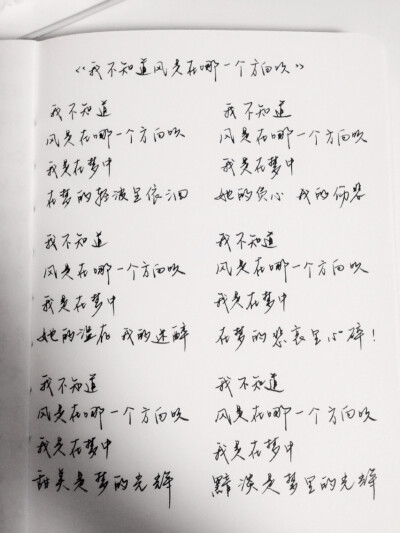 《我不知道风是在哪一个方向吹》
我不知道
风是在哪一个方向吹
我是在梦中
在梦的轻波里依洄
我不知道
风是在哪一个方向吹
我是在梦中
她的温存 我的迷醉
我不知道
风是在哪一个方向吹
我是在梦中
甜美是梦的光辉
我不知道
风是在哪一个方向吹
我是在梦中
她的负心 我的伤悲
我不知道
风是在哪一个方向吹
我是在梦中
在梦的悲哀里心碎！
我不知道
风是在哪一个方向吹
我是在梦中
黯淡是梦里的光辉